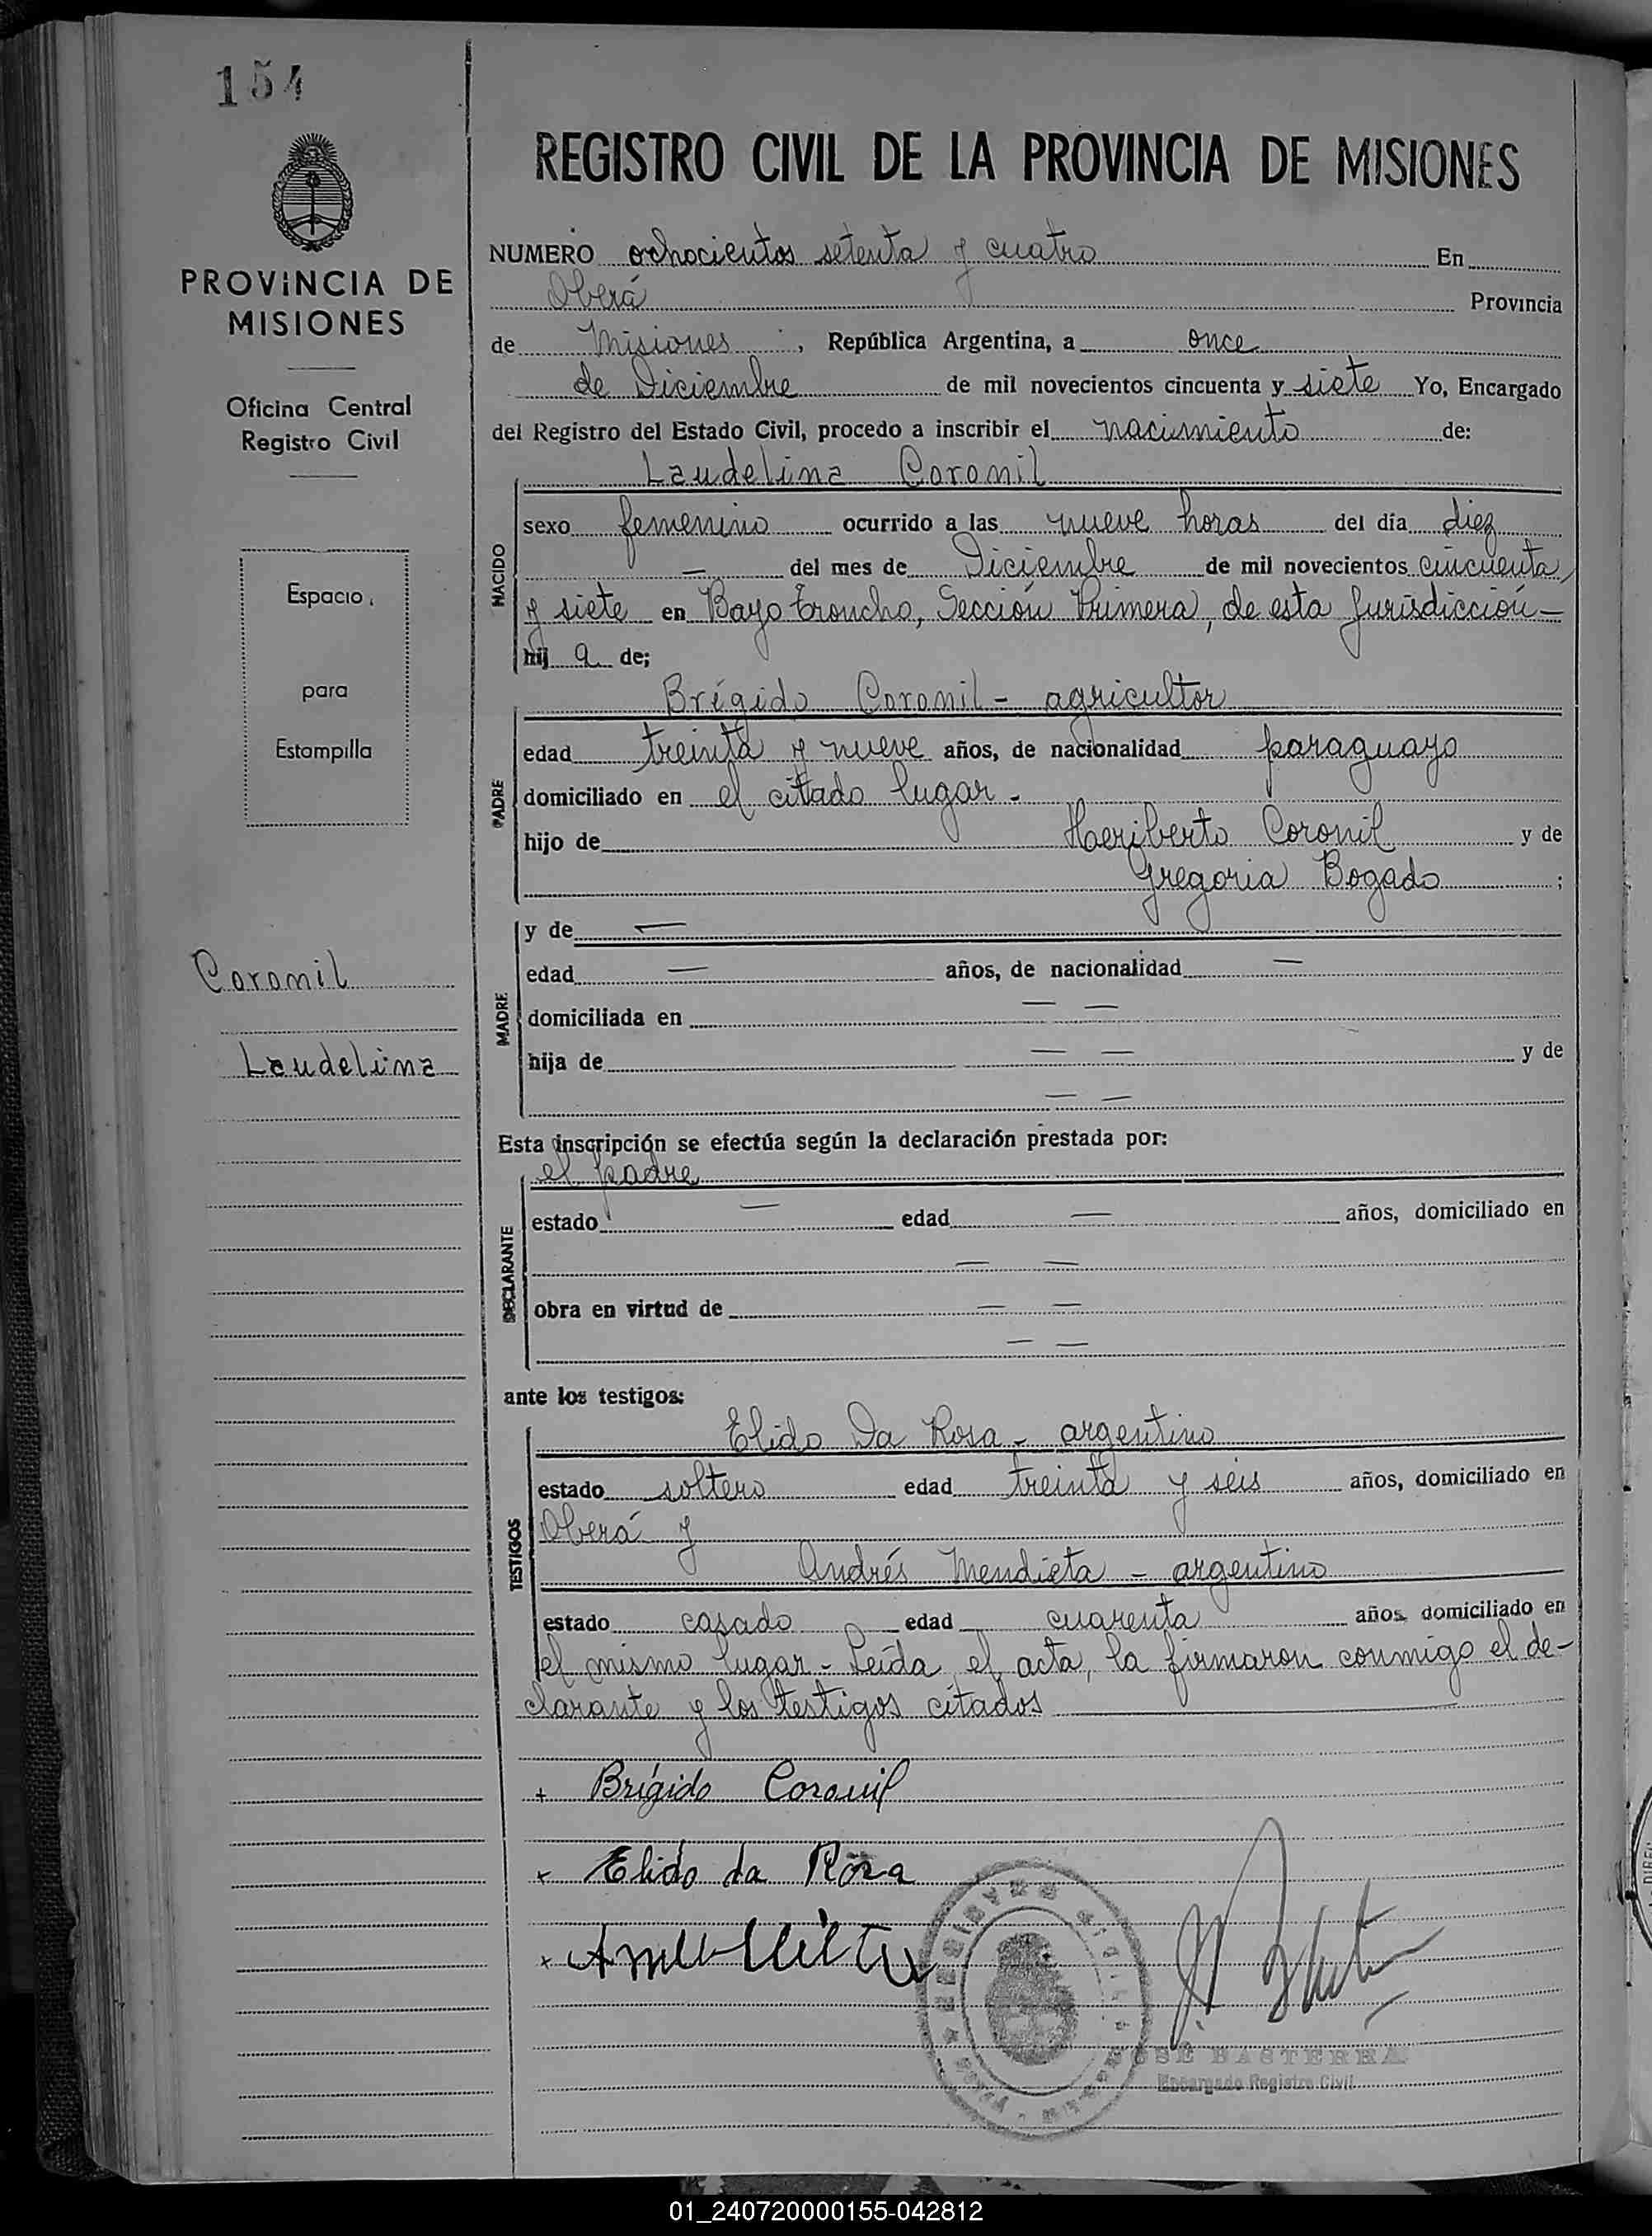 154
PROVINCIA DE
MISIONES
Oficina Central
Registro Civil
Espacio
para
Estampilla
Coronil
Laudelina
REGISTRO CIVIL DE LA PROVINCIA DE MISIONES
NUMERO ochocientos setenta y cuatro En
Oberá Provincia
de Misiones, República Argentina, a once
de Diciembre de mil novecientos cincuenta y siete Yo, Encargado
del Registro del Estado Civil, procedo a inscribir el nacimiento de:
Laudelina Coronil
NACIDO
sexo femenino ocurrido a las nueve horas del día diez
— del mes de Diciembre de mil novecientos cincuenta
y siete en Bayo Troncho, Sección Primera, de esta Jurisdicción—
hij a de;
Brígido Coronil - agricultor
PADRE
edad treinta y nueve años, de nacionalidad paraguayo
domiciliado en el citado lugar -
hijo de Heriberto Coronil y de
Gregoria Bogado ;
MADRE
y de —
edad — años, de nacionalidad —
domiciliada en — —
hija de — — y de
— —
Esta inscripción se efectúa según la declaración prestada por:
el padre
DECLARANTE
estado — edad — años, domiciliado en
— —
obra en virtud de — —
— —
ante los testigos:
Elido Da Rosa - argentino
TESTIGOS
estado soltero edad treinta y seis años, domiciliado en
Oberá y
Andrés Mendieta - argentino
estado casado edad cuarenta años domiciliado en
el mismo lugar - Leída el acta, la firmaron conmigo el de-
clarante y los testigos citados
+ Brígido Coronil
x Elido da Roza
x
JOSÉ BASTERRA
Encargado Registro Civil
01_240720000155-042812